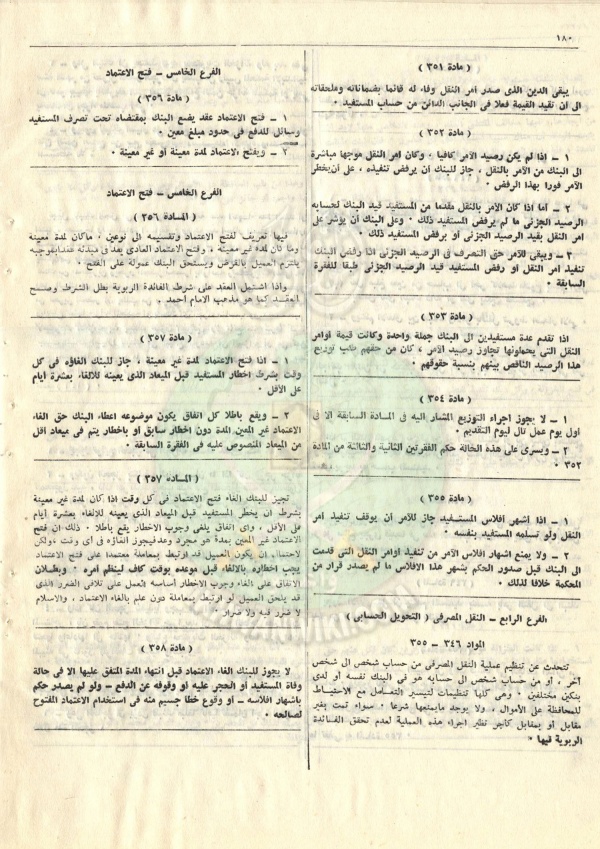 ١٨٠
( مادة ٣٥١ )
يبقى الدين الذى صدر أمر النقل وفاء له قائما بضماناته وملحقاته
الى أن تقيد القيمة فعلا فى الجانب الدائن من حساب المستفيد ٠
( مادة ٣٥٢ )
١ — اذا لم يكن رصيد الآمر كافيا ، وكان أمر النقل موجها مباشرة
الى البنك من الآمر بالنقل ، جاز للبنك أن يرفض تنفيذه ، على أن يخطر
الآمر فورا بهذا الرفض ٠
٢ — أما اذا كان الأمر بالنقل مقدما من المستفيد قيد البنك لحسابه
الرصيد الجزئى ما لم يرفض المستفيد ذلك ٠ وعلى البنك أن يؤشر على
أمر النقل بقيد الرصيد الجزئى أو برفض المستفيد ذلك ٠
٣ — ويبقى للآمر حق التصرف فى الرصيد الجزئى اذا رفض البنك
تنفيذ أمر النقل أو رفض المستفيد قيد الرصيد الجزئى طبقا للفقرة
السابقة ٠
( مادة ٣٥٣ )
اذا تقدم عدة مستفيدين الى البنك جملة واحدة وكانت قيمة أوامر
النقل التى يحملونها تجاوز رصيد الآمر ، كان من حقهم طلب توزيع
هذا الرصيد الناقص بينهم بنسبة حقوقهم ٠
( مادة ٣٥٤ )
١ — لا يجوز اجراء التوزيع المشار اليه فى المادة السابقة الا فى
أول يوم عمل تال ليوم التقديم ٠
٢ — ويسرى على هذه الحالة حكم الفقرتين الثانية والثالثة من المادة
٣٥٢ ٠
( مادة ٣٥٥ )
١ — اذا أشهر افلاس المستفيد جاز للآمر أن يوقف تنفيذ أمر
النقل ولو تسلمه المستفيد بنفسه ٠
٢ — ولا يمنع اشهار افلاس الآمر من تنفيذ أوامر النقل التى قدمت
الى البنك قبل صدور الحكم بشهر هذا الافلاس ما لم يصدر قرار من
المحكمة خلافا لذلك ٠
الفرع الرابع — النقل المصرفى ( التحويل الحسابى )
المواد ٣٤٦ — ٣٥٥
تتحدث عن تنظيم عملية النقل المصرفى من حساب شخص الى شخص
آخر ، أو من حساب شخص الى حسابه هو فى البنك نفسه أو لدى
بنكين مختلفين ٠ وهى كلها تنظيمات لتيسير التعامل مع الاحتياط
للمحافظة على الأموال ، ولا يوجد مايمنعها شرعا ٠ سواء تمت بغير
مقابل أو بمقابل كأجر نظير اجراء هذه العملية لعدم تحقق الفائدة
الربوية فيها ٠
الفرع الخامس — فتح الاعتماد
( مادة ٣٥٦ )
١ — فتح الاعتماد عقد يضع البنك بمقتضاه تحت تصرف المستفيد
وسائل للدفع فى حدود مبلغ معين ٠
٢ — ويفتح الاعتماد لمدة معينة أو غير معينة ٠
الفرع الخامس — فتح الاعتماد
( المسادة ٣٥٦ )
فيها تعريف لفتح الاعتماد وتقسيمه الى نوعين ٠ ماكان لمدة معينة
وما كان لمدة غير معينة ، وفتح الاعتماد العادى يعد فى مبدئه عقدا بموجبه
يلتزم العميل بالقرض ويستحق البنك عمولة على الفتح ٠
واذا اشتمل العقد على شرط الفائدة الربوية بطل الشرط وصح
العقد كما هو مذهب الامام أحمد ٠
( مادة ٣٥٧ )
١ — اذا فتح الاعتماد لمدة غير معينة ، جاز للبنك الغاؤه فى كل
وقت بشرط اخطار المستفيد قبل الميعاد الذى يعينه للالغاء بعشرة أيام
على الأقل ٠
٢ — ويقع باطلا كل اتفاق يكون موضوعه اعطاء البنك حق الغاء
الاعتماد غير المعين المدة دون اخطار سابق أو باخطار يتم فى ميعاد أقل
من الميعاد المنصوص عليه فى الفقرة السابقة ٠
( المساده ٣٥٧ )
تجيز للبنك إلغاء فتح الاعتماد فى كل وقت اذا كان لمدة غير معينة
بشرط أن يخطر المستفيد قبل الميعاد الذى يعينه للالغاء بعشرة أيام
على الأقل ، وأى اتفاق يلغى وجوب الاخطار يقع باطلا ٠ ذلك أن فتح
الاعتماد غير المعين بمدة هو مجرد وعد فيجوز الغاؤه فى أى وقت ، ولكن
لاحتمال أن يكون العميل قد ارتبط بمعاملة معتمدا على فتح الاعتماد
يجب اخطاره بالالغاء قبل موعده بوقت كاف لينظم أمره ٠ وبطلان
الاتفاق على الغاء وجوب الاخطار أساسه العمل على تلافى الضرر الذى
قد يلحق العميل لو ارتبط بمعاملة دون علم بالغاء الاعتماد ، والاسلام
لا ضرر فيه ولا ضرار ٠
( مادة ٣٥٨ )
لا يجوز للبنك الغاء الاعتماد قبل انتهاء المدة المتفق عليها الا فى حالة
وفاة المستفيد أو الحجر عليه أو وقوفه عن الدفع — ولو لم يصدر حكم
باشهار افلاسه — أو وقوع خطأ جسيم منه فى استخدام الاعتماد المفتوح
لصالحه ٠